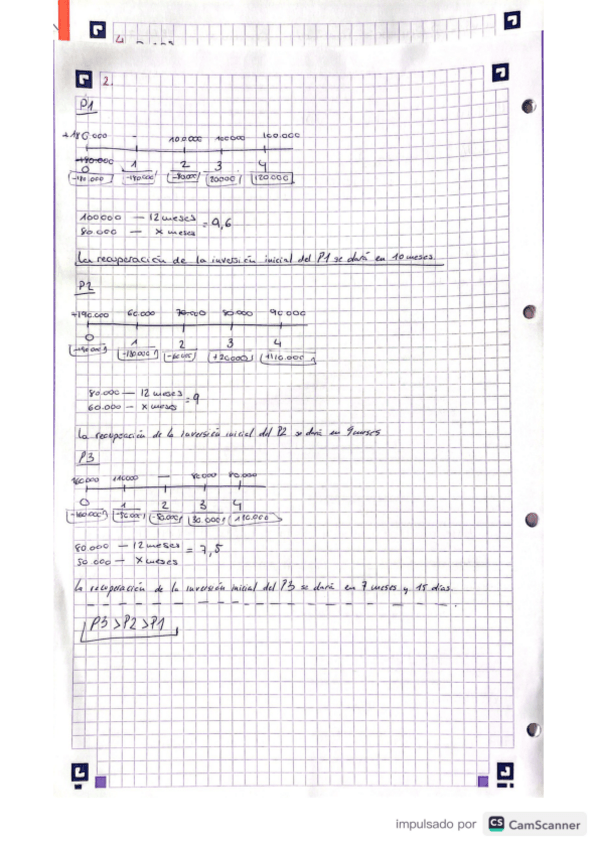 2.
P1
+180.000 - 100.000 100.000 100.000
-180.000
0 1 2 3 4
-180.000 -180.000 -80.000 20000 120.000
100000 — 12 meses
80.000 — x meses = 9,6
La recuperación de la inversión inicial del P1 se dará en 10 meses.
P2
60.000 70.000 80.000 90.000
0 1 2 3 4
+20000
80.000 — 12 meses
60.000 — x meses = 9
La recuperación de la inversión inicial del P2 se dará en 9 meses
P3
160000 110000 — 80.000 80.000
0 1 2 3 4
-160.000 -50.000 -50.000 30.000 110.000
80.000 — 12 meses
50.000 — x meses = 7,5
La recuperación de la inversión inicial del P3 se dará en 7 meses y 15 días.
P3 > P2 > P1
impulsado por CS CamScanner